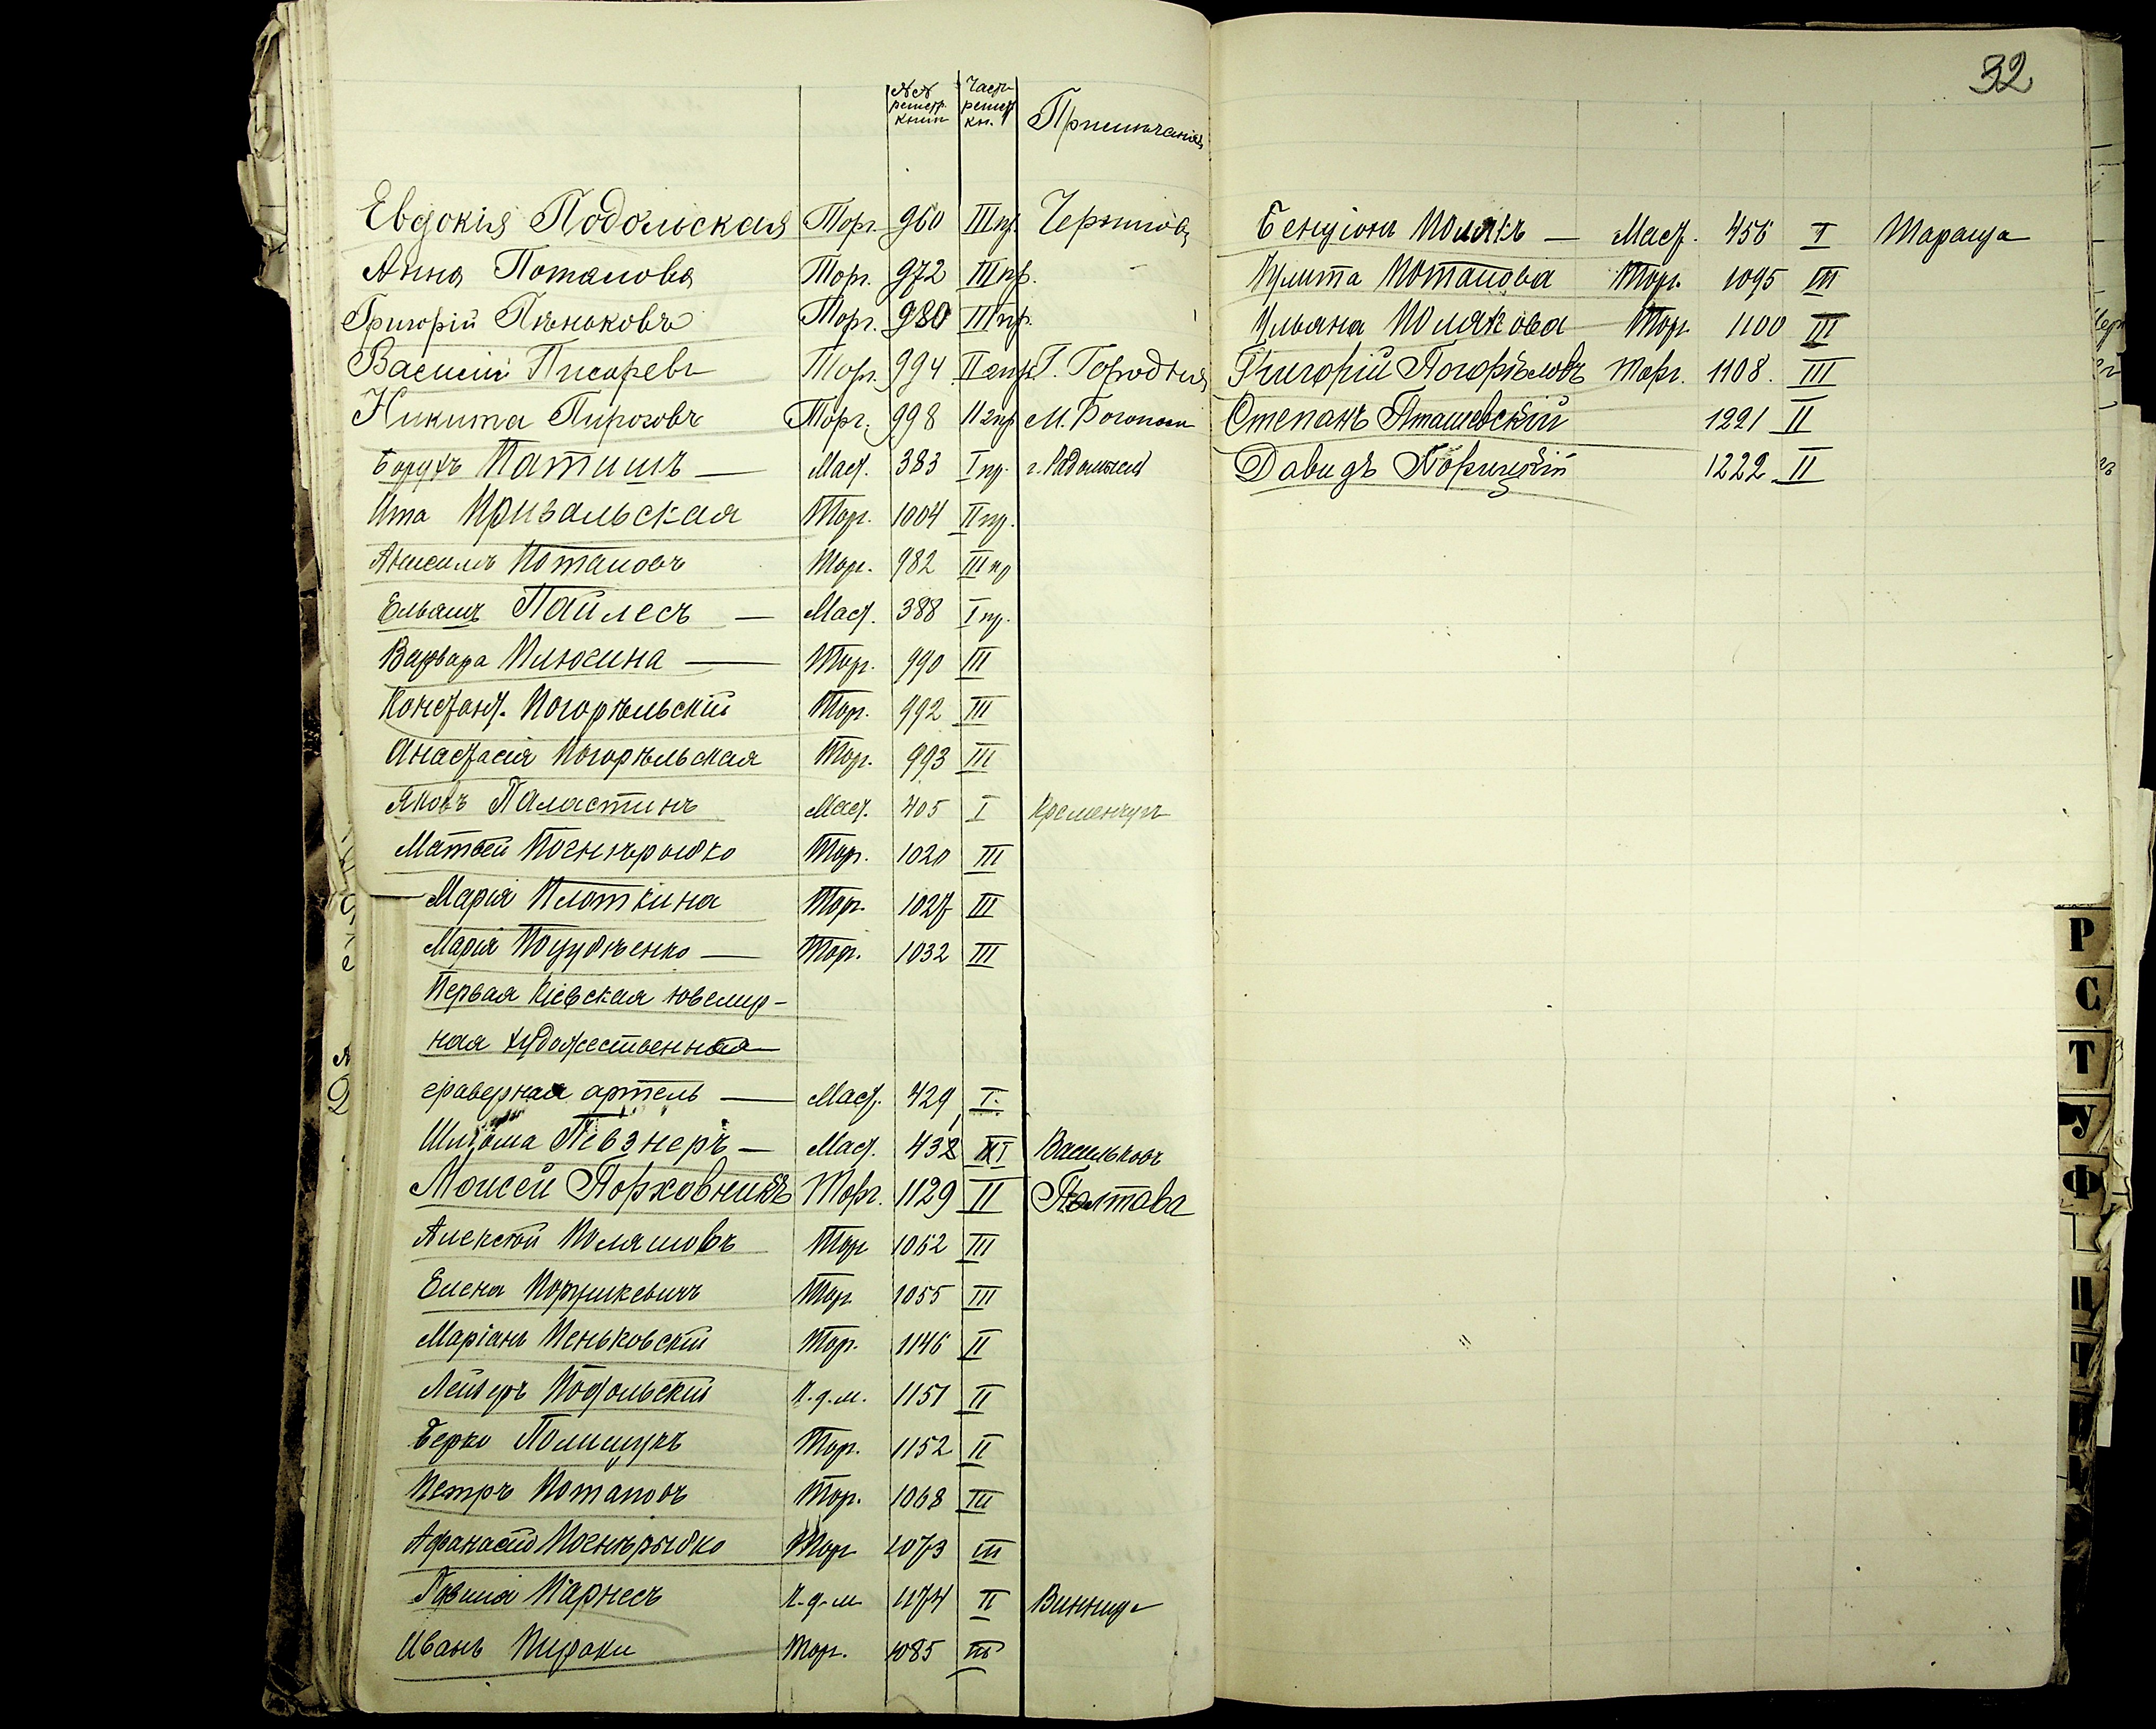 32
№№ регистр. книги
Часть регист. кн.
Примѣчанія
Евдокія Подольская Торг. 960 III пр. Черниговъ
Анна Потапова Торг. 972 III пр.
Григорій Пѣньковъ Торг. 980 III пр.
Василій Писаревъ Торг. 994 II 2 пр. Г. Городня
Никита Пироговъ Торг. 998 II 2 пр М. Богополь
Борухъ Патишъ — Маст. 383 I пр. г. Радомысль
Ита Привальская Торг. 1004 II пр.
Потаповъ Торг. 982 III пр
Ельяшъ Пайлесъ — Маст. 388 I пр.
Варвара Плюгина — Торг. 990 III
Констант. Погорѣльскій Торг. 992 III
Анастасія Погорѣльская Торг. 993 III
Яковъ Паластинъ Маст. 405 I Кременчугъ
Матвей Торг. 1020 III
Марія Плоткина Торг. 1027 III
Марія — Торг. 1032 III
Первая Кіевская ювелир-
ная художественная
граверная артель — Маст. 429 I.
Шліома Певзнеръ — Маст. 438 I Васильковъ
Моисей Порховникъ Торг. 1129 II Полтава
Алексѣй Поляшовъ Торг 1052 III
Елена Торг 1055 III
Маріанъ Пеньковскій Торг. 1146 II
Лейзеръ Подольскій К.д.м. 1151 II
Берко Полищукъ Торг. 1152 II
Петръ Потаповъ Торг. 1068 III
Афанасій Торг 1073 III
Парнесъ К.д.м 1174 II Винница
Иванъ Торг. 1085 III
Бенціонъ Полякъ — Маст. 456 I Тараща
Улита Потапова Торг. 1095 III
Ульяна Полякова Торг 1100 III
Григорій Погорѣловъ Торг. 1108. III
Степанъ Пташевскій 1221 II
Давидъ Порицкій 1222 II
Р
С
Т
У
Ф